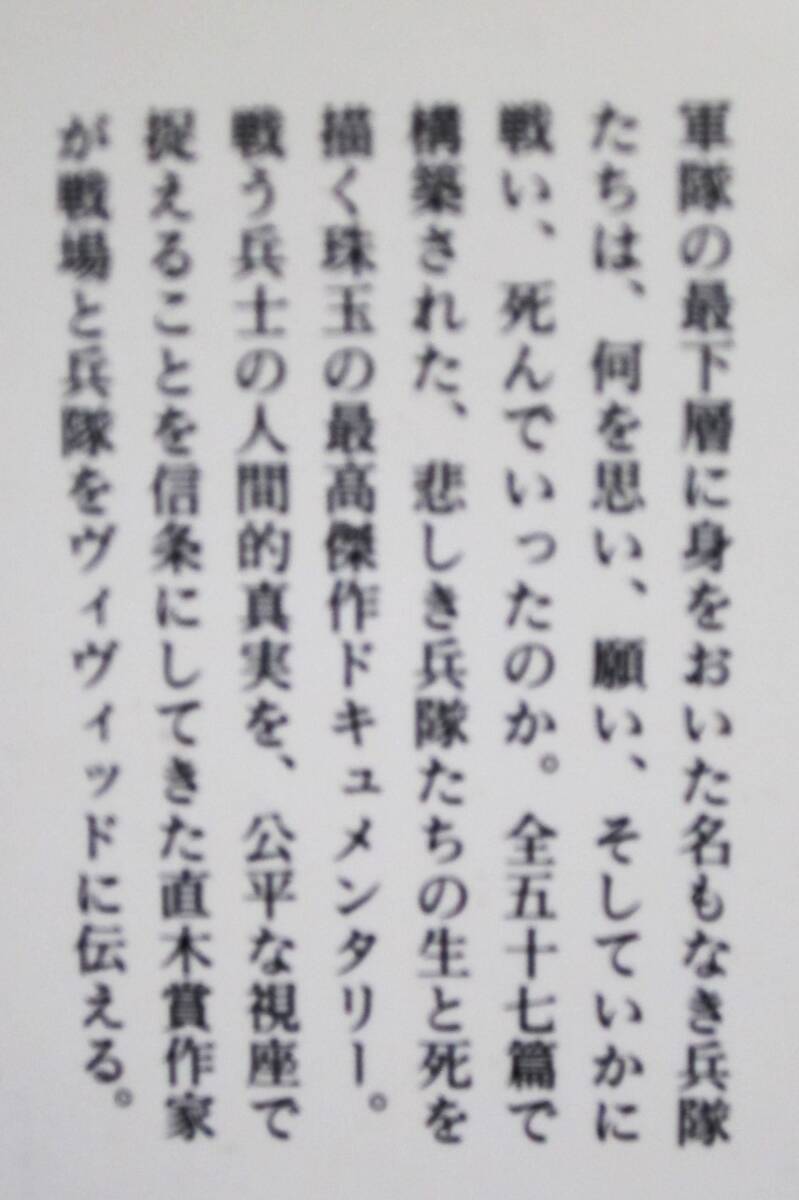 軍隊の最下層に身をおいた名もなき兵隊
たちは、何を思い、願い、そしていかに
戦い、死んでいったのか。全五十七篇で
構築された、悲しき兵隊たちの生と死を
描く珠玉の最高傑作ドキュメンタリー。
戦う兵士の人間的真実を、公平な視座で
捉えることを信条にしてきた直木賞作家
が戦場と兵隊をヴィヴィッドに伝える。